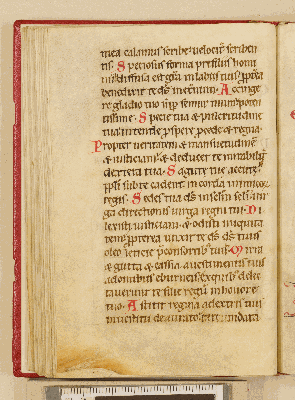 mea calamus scribe: uelociť scriben
tis. Speciosus forma pre filiis homī
nū diffusa est grā ī labiis tuis ppťea
benedixit te dš in eternū. Accinge
re gladio tuo sup femur tuum poten
tissime. Specie tua & pulcritudine
tua intende pspere pcede & regna.
Propter ueritatem & mansuetudinē
& iusticiam & deducet te mirabiliť
dextera tua. Sagitte tue acute
ppłi sub te cadent in corda inimicoꝝ
regis. Sedes tua dš in sclm scli uir
ga directionis uirga regni tui. Di
lexisti iusticiam & odisti iniquita
tem ppťerea unxit te dš dš tuus
oleo leticie p consortibꝰ tuis. Mirra
& gutta & cassia a uestimentis tuis
a domibꝰ eburneis ex quibꝰ delec
tauerunt te filie regū in honore
tuo. Astitit regina a dextris tuis
in uestitu deaurato circumdata